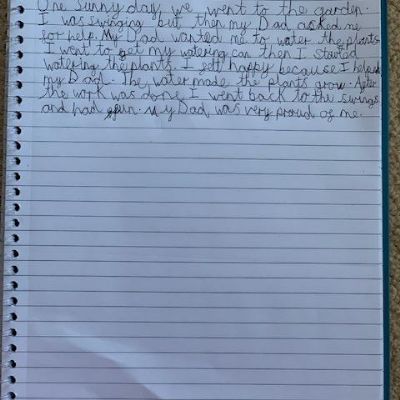 One Sunny day we went to the garden.
I was swinging but then my Dad asked me
for help. My Dad wanted me to water the plants
I went to get my watering can then I started
watering the plants. I felt happy because I helped
my Dad. The water made the plants grow. After
the work was done I went back to the swings
and had fun. My Dad was very proud of me.